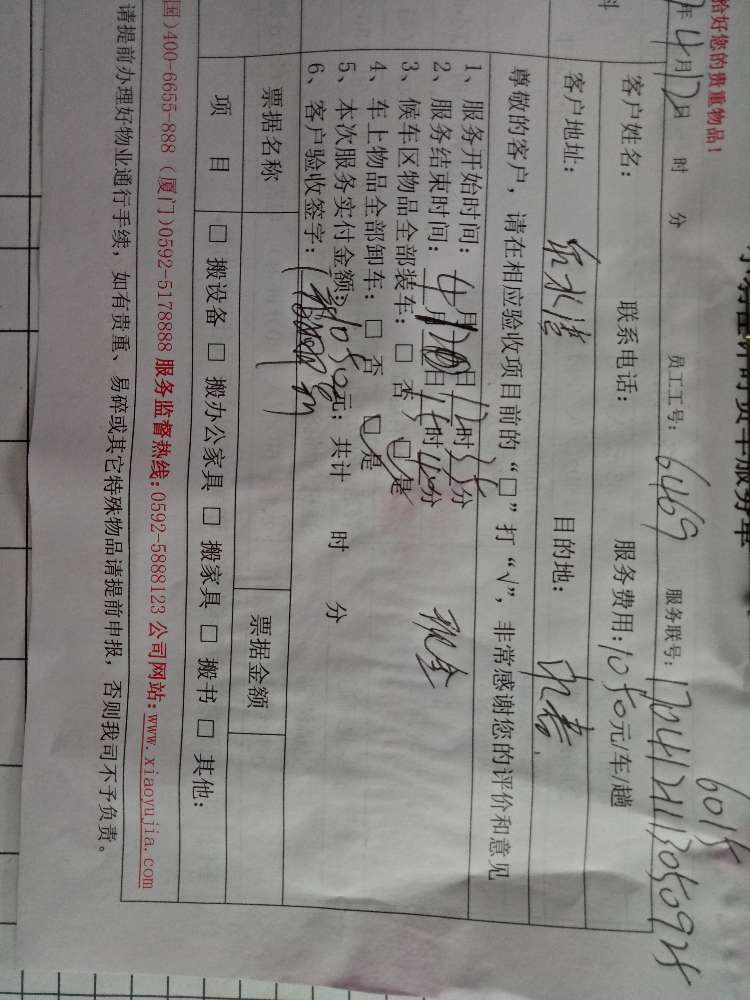 恰好您的贵重物品！
年4月12日 时 分 员工工号：6469 服务联号：
6015
客户姓名： 联系电话： 服务费用：1050元/车/趟
客户地址： 目的地：
尊敬的客户，请在相应验收项目前的“□”打“√”，非常感谢您的评价和意见
1、服务开始时间：4月12日12时35分
2、服务结束时间：月日15时分
3、候车区物品全部装车：□否，□是 现金
4、车上物品全部卸车：□否 □是
5、本次服务实付金额：1050元；共计 时 分
6、客户验收签字：
票据名称 票据金额
项目 □搬设备 □搬办公家具 □搬家具 □搬书 □其他：
国)400-6655-888（厦门)0592-5178888 服务监督热线：0592-5888123 公司网站：www.xiaoyujia.com
请提前办理好物业通行手续，如有贵重、易碎或其它特殊物品请提前申报，否则我司不予负责。